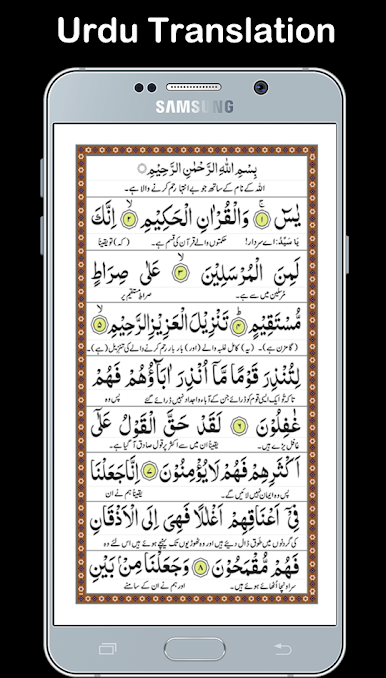 Urdu Translation
SAMSUNG
بِسْمِ اللهِ الرَّحْمٰنِ الرَّحِيْمِ
اللہ کے نام کے ساتھ جو بے انتہا رحم کرنے والا ہے۔
يٰسٓ ۚ ﴿۱﴾ وَالْقُرْاٰنِ الْحَكِيْمِ ﴿۲﴾ اِنَّكَ
یا سَیِّد: اے سردار! حکمتوں والے قرآن کی قسم ہے۔ (کہ) تو یقیناً
لَمِنَ الْمُرْسَلِيْنَ ﴿۳﴾ عَلٰى صِرَاطٍ
مُرسَلین میں سے ہے۔ صراطِ مستقیم پر
مُّسْتَقِيْمٍ ﴿۴﴾ تَنْزِيْلَ الْعَزِيْزِ الرَّحِيْمِ ﴿۵﴾
(گامزن ہے)۔ (یہ) کامل غلبہ والے (اور) بار بار رحم کرنے والے کی تنزیل (ہے)۔
لِتُنْذِرَ قَوْمًا مَّاۤ اُنْذِرَ اٰبَآؤُهُمْ فَهُمْ
تا کہ تو ایک ایسی قوم کو ڈرائے جن کے آباء و اجداد نہیں ڈرائے گئے پس وہ
غٰفِلُوْنَ ﴿۶﴾ لَقَدْ حَقَّ الْقَوْلُ عَلٰٓى
غافل پڑے ہیں۔ یقیناً ان میں سے اکثر پر قول صادق آ گیا ہے۔
اَكْثَرِهِمْ فَهُمْ لَا يُؤْمِنُوْنَ ﴿۷﴾ اِنَّا جَعَلْنَا
پس وہ ایمان نہیں لائیں گے۔ یقیناً ہم نے ان
فِيْٓ اَعْنَاقِهِمْ اَغْلٰلًا فَهِيَ اِلَى الْاَذْقَانِ
کی گردنوں میں طوق ڈال دیئے ہیں اور وہ ٹھوڑیوں تک پہنچے ہوئے ہیں اس لئے وہ
فَهُمْ مُّقْمَحُوْنَ ﴿۸﴾ وَجَعَلْنَا مِنْۢ بَيْنِ
سر اونچا اُٹھائے ہوئے ہیں۔ اور ہم نے ان کے سامنے